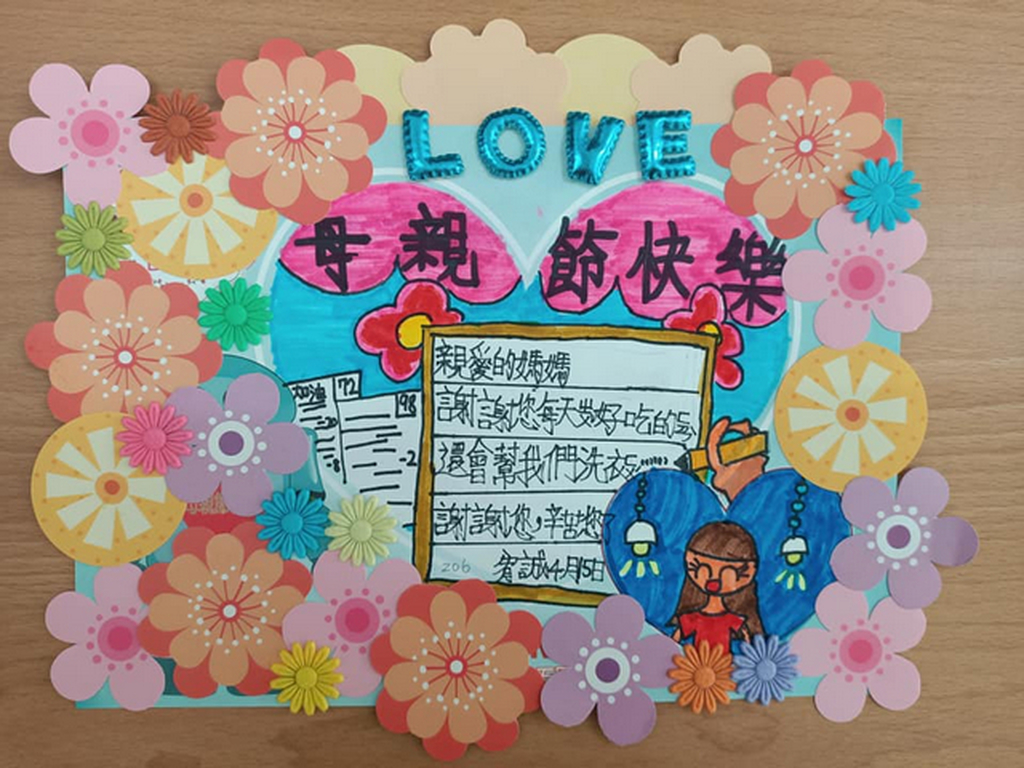 LOVE
母親節快樂
親愛的媽媽
謝謝您每天煮好吃的
還會幫我們洗衣
謝謝您，辛苦您
206
宥誠4月15日
加油
72
98
-2
-8